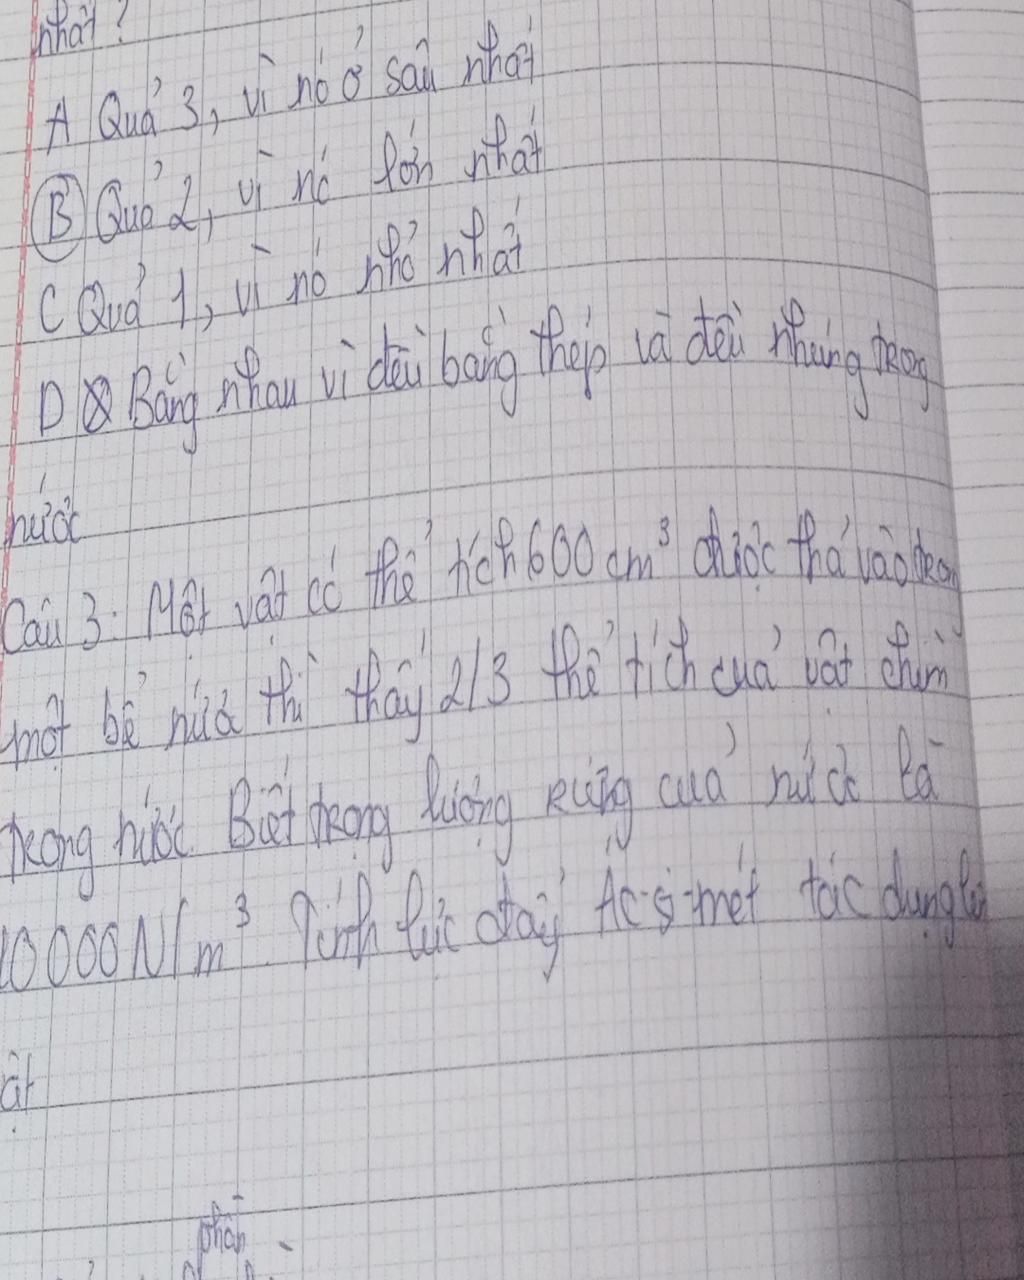 nhất?
A Quả 3, vì nó ở sâu nhất
B Quả 2, vì nó lớn nhất
C Quả 1, vì nó nhỏ nhất
D Bằng nhau vì đều bằng thép và đều nhúng trong
nước
Câu 3: Một vật có thể tích 600 cm³ được thả vào tron
một bể nước thì thấy 2/3 thể tích của vật chìm
trong nước. Biết trọng lượng riêng của nước là
10000N/m³. Tính lực đẩy Ác-si-mét tác dụng lên
ật
phần